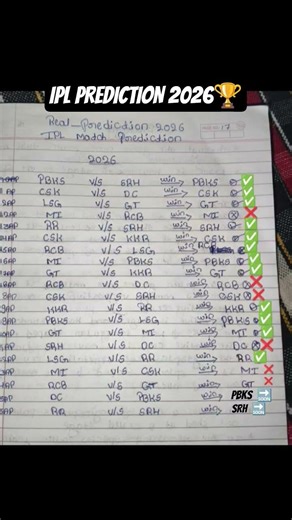 IPL PREDICTION 2026🏆
Real_Prediction 2026
IPL Match Prediction
2026
PBKS v/s SRH win→ PBKS ✅
CSK v/s DC win→ CSK ✅
LSG v/s GT win→ GT ✅
MI v/s RCB win→ MI ❌
RR v/s SRH win→ SRH ✅
CSK v/s KKR win→ CSK ✅
RCB v/s LSG win→ RCB ✅
MI v/s PBKS win→ PBKS ✅
GT v/s KKR win→ GT ✅
RCB v/s DC win→ RCB ❌
CSK v/s SRH win→ CSK ❌
KKR v/s RR win→ KKR ✅
PBKS v/s LSG win→ PBKS ✅
GT v/s MI win→ MI ✅
SRH v/s DC win→ DC ❌
LSG v/s RR win→ RR ✅
MI v/s CSK win→ MI ❌
RCB v/s GT win→ GT ❌
DC v/s PBKS win→ PBKS ➡
RR v/s SRH win→ SRH ➡